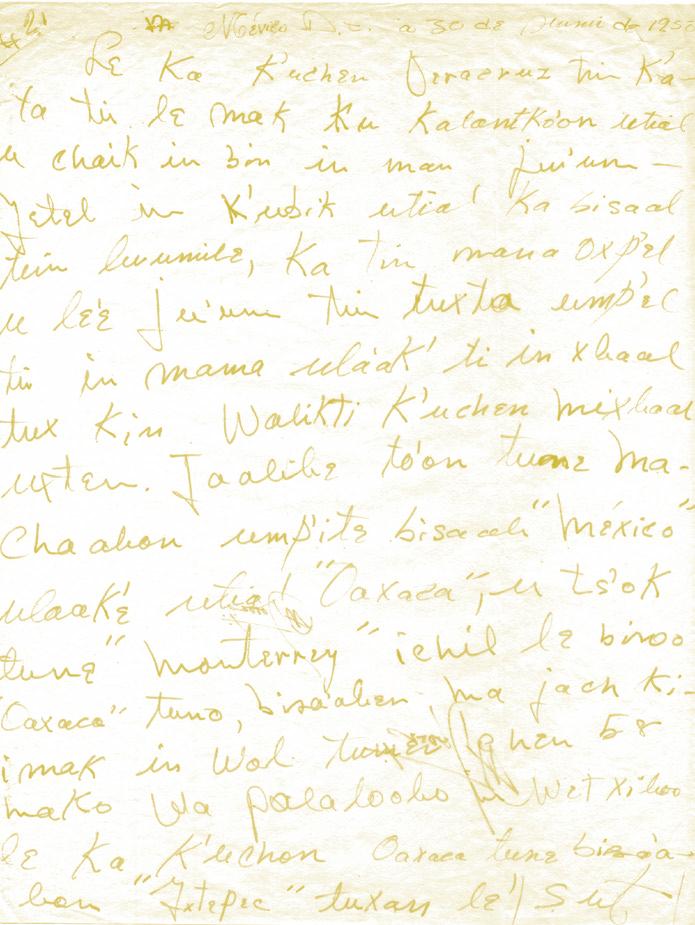 México D.F. a 30 de Junio de 195
Le Ka K'uchen Veracruz tin K'a-
ta tin le mak Ku Kalantkóon utial
u chaik in bin in man ju'um —
Jetel in K'ubik utia' Ka bisaal
tin luumile, Ka tin mana oxp'el
u lé'e ju'um tin tuxta ump'el
tin in mama uláak' ti in xbaal
tux Kin Walikti K'uchen mixbaal
uxten. Jaalibe tó'on tune ma-
Chaabon ump'ite bisaab "México"
ulaak'e utia' "Oaxaca", u ts'ok
tune "Monterrey" ichil le binoo
"Oaxaca" tuno, bisa'aben, ma jach ki-
imak in Wol 58
mako Wa palaloobo in Wet xiboo
le Ka K'uchon Oaxaca tune bisaa-
bon "Ixtepec" tuxan le'